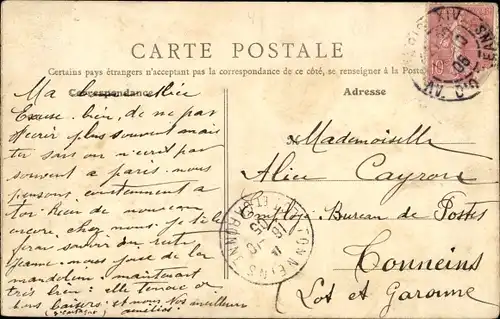 CARTE POSTALE
Certains pays étrangers n'acceptant pas la correspondance de ce côté, se renseigner à la Poste
Correspondance
Adresse
Ma Alice
Excuse bien, de ne pas
t'écrir plus souvent mais
tu sais on n'écrit pas
souvent a paris. nous
pensons constamment a
toi. Rien de nouveau
encore, chez nous. je te le
frai savoir du reste
Jeanne nous joue de la
mandoline, maintenant
très bien : elle t'envoie
Baisers et nous nos meilleures
amitiés
Mademoiselle
Alice Cayrou
Employé Bureau de Postes
Tonneins
(Lot et Garonne
TONNEINS
LOT-ET-GARONNE